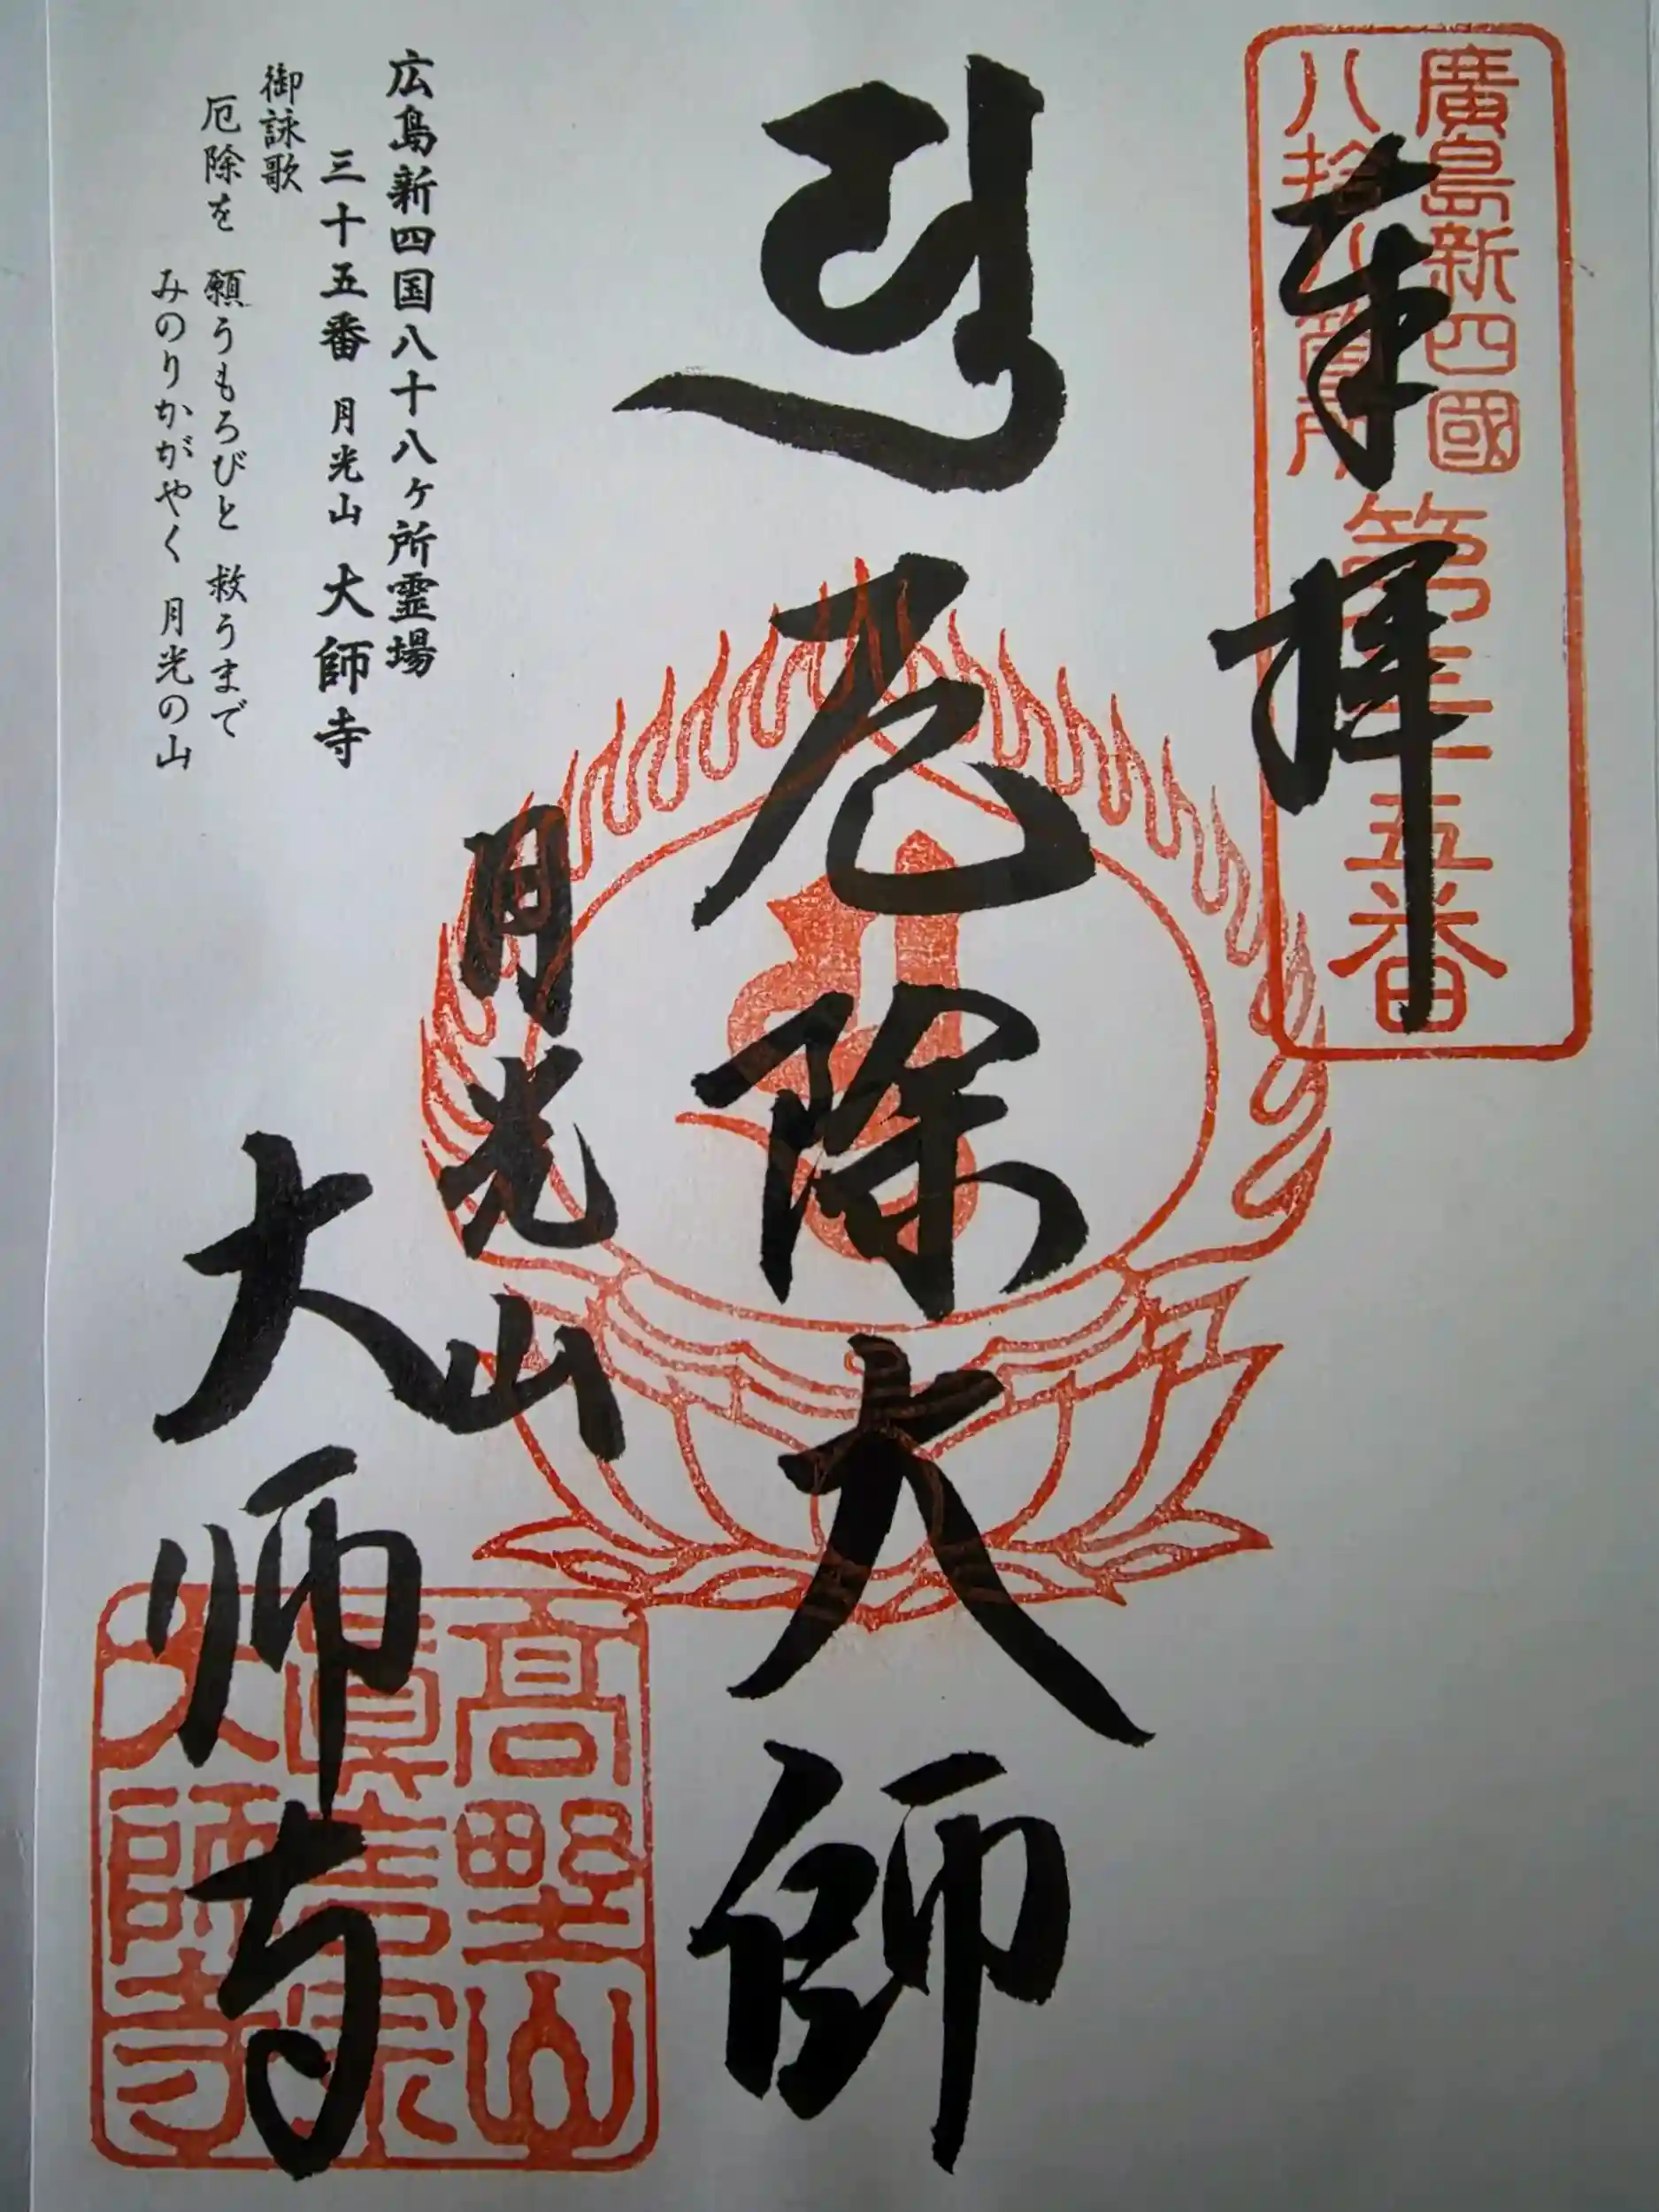 廣島新四國
八拾八箇所
第三十五番
奉拝
厄除大師
月光山
大師寺
高野山
真言宗
大師寺
広島新四国八十八ヶ所霊場
三十五番 月光山 大師寺
御詠歌
厄除を 願うもろびと 救うまで
みのりかがやく 月光の山